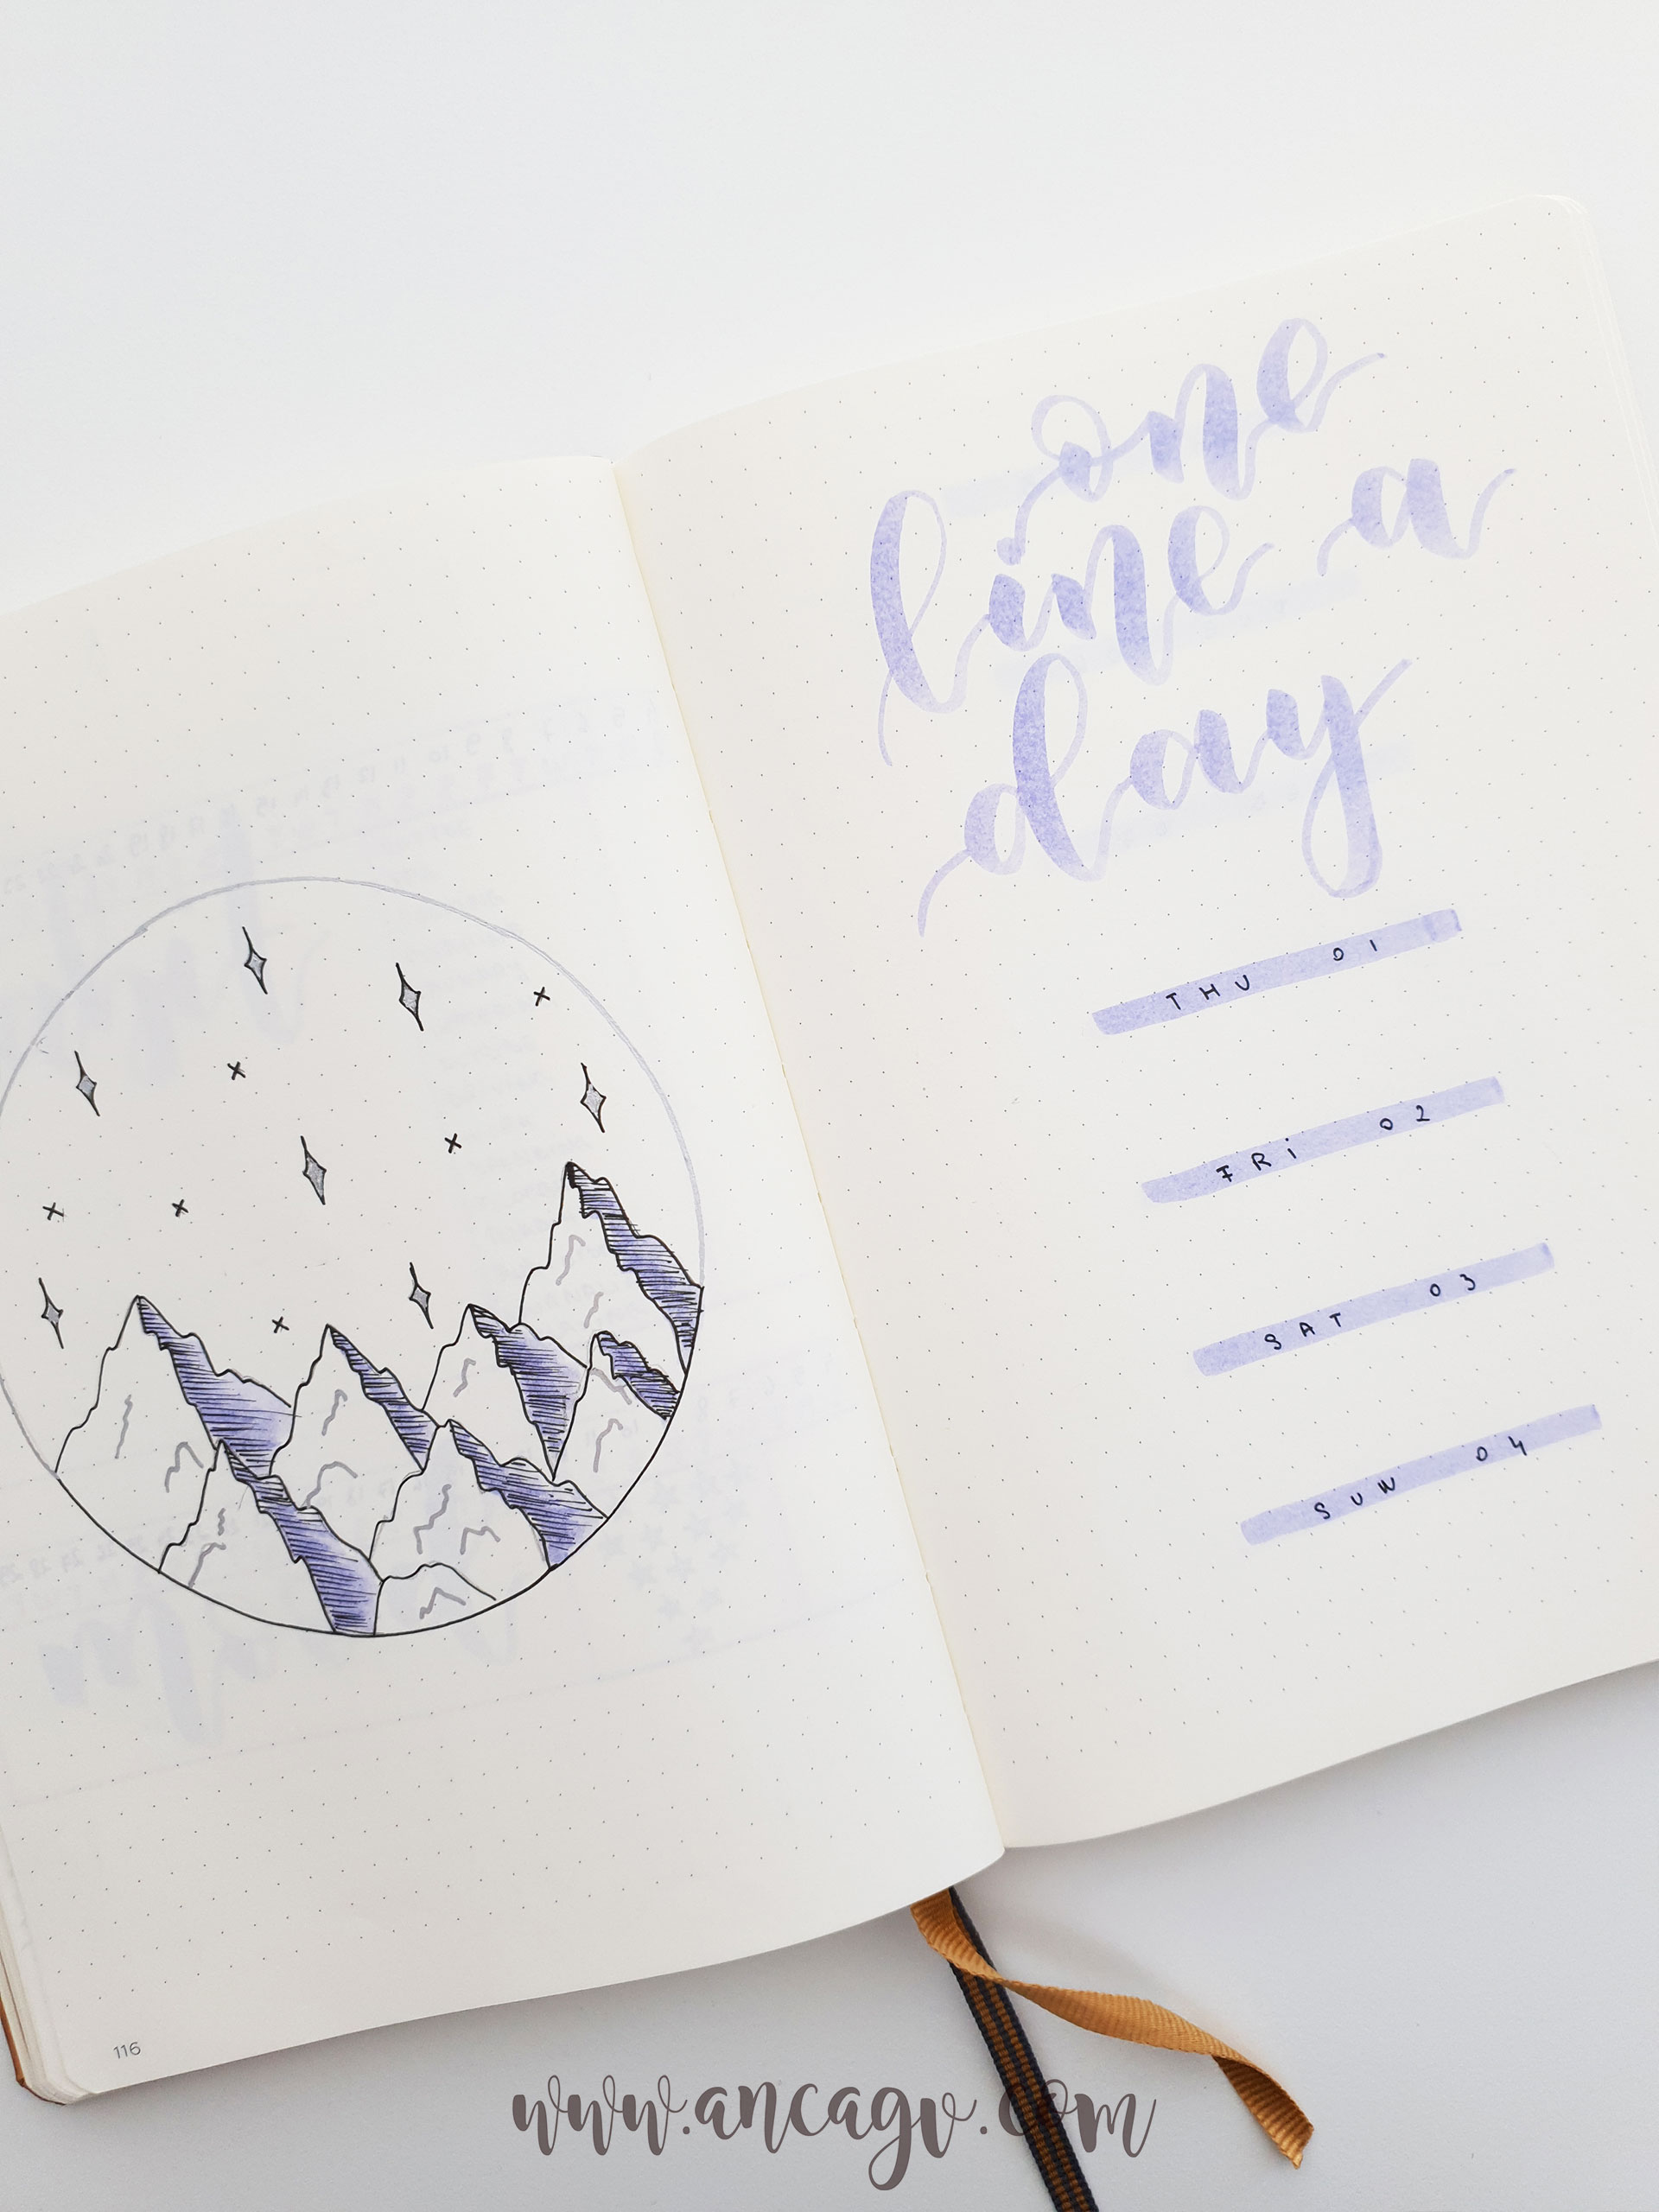 one
line a
day
THU 01
FRi 02
SAT 03
SUN 04
116
www.ancagv.com